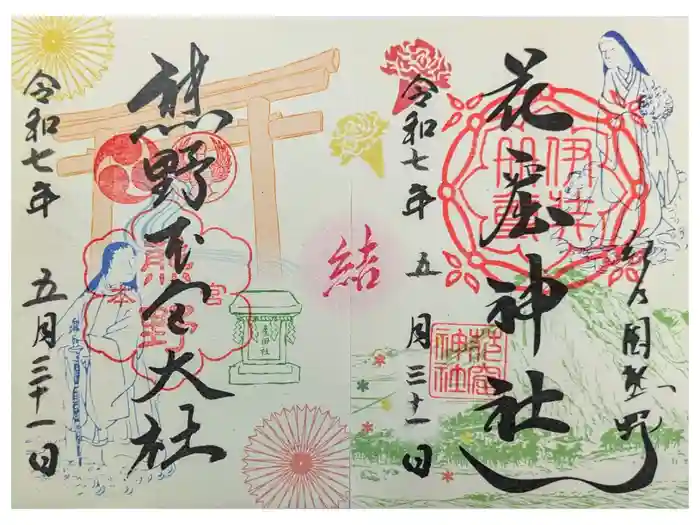 紀乃国熊野
花窟神社
伊弉冊尊
花窟
神社
令和七年 五月三十一日
結
熊野本宮大社
熊野
本宮
産田社
令和七年 五月三十一日